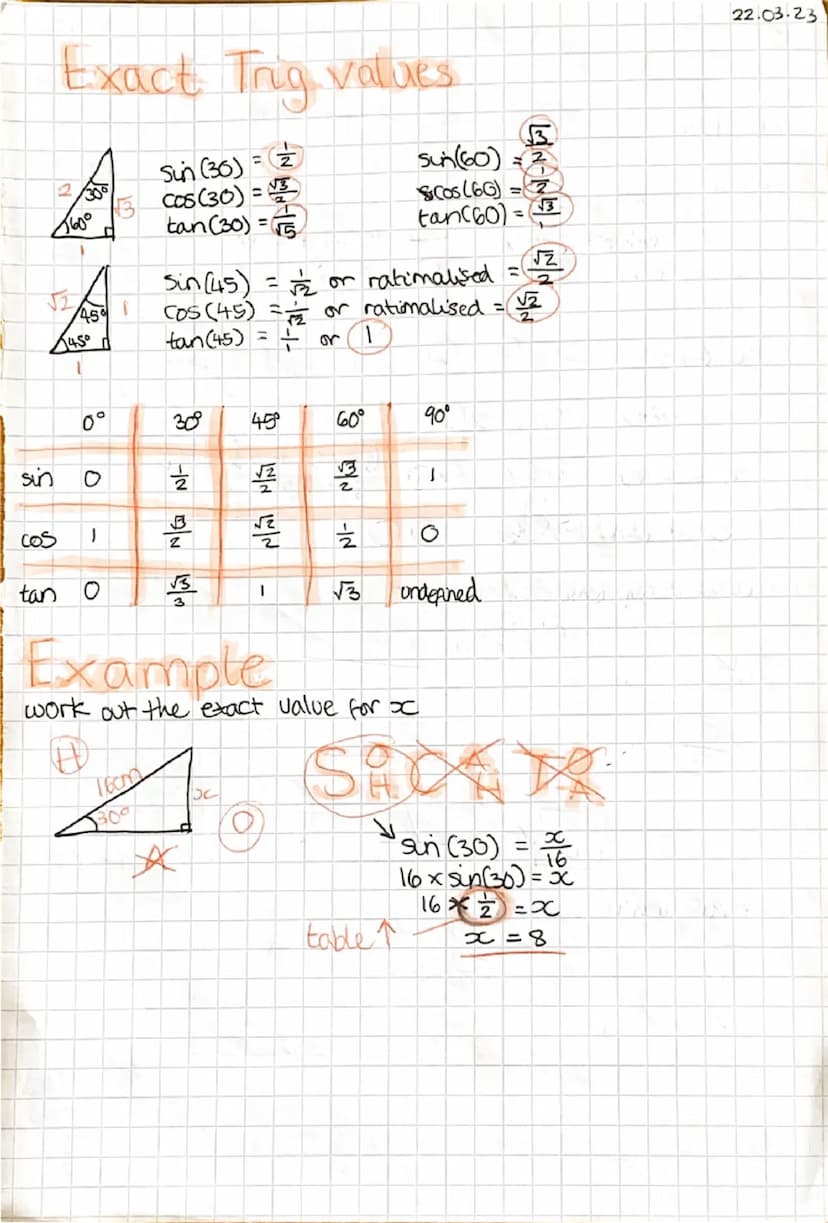 22.03.23
Exact Trig values
2 30° √3 60° 1
sin(30) = 1/2
cos(30) = √3/2
tan(30) = 1/√5
sin(60) = √3/2
cos(60) = 1/2
tan(60) = √3/1
√2 45° 1 45° 1
sin(45) = 1/√2 or ratimalised = √2/2
cos(45) = 1/√2 or ratimalised = √2/2
tan(45) = 1/1 or 1
0° 30° 45° 60° 90°
sin 0 1/2 √2/2 √3/2 1
cos 1 √3/2 √2/2 1/2 0
tan 0 √3/3 1 √3 undefined
Example
work out the exact value for x
H 16cm x 30° O A
S O H C A H T O A
sin(30) = x/16
16 × sin(30) = x
16 × 1/2 = x
table ↑ x = 8